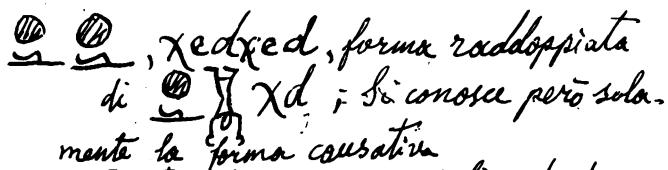 𓐍𓂧𓐍𓂧, χedχed, forma raddoppiata
di 𓐍𓂧 χd ; Si conosce però sola-
mente la forma causativa